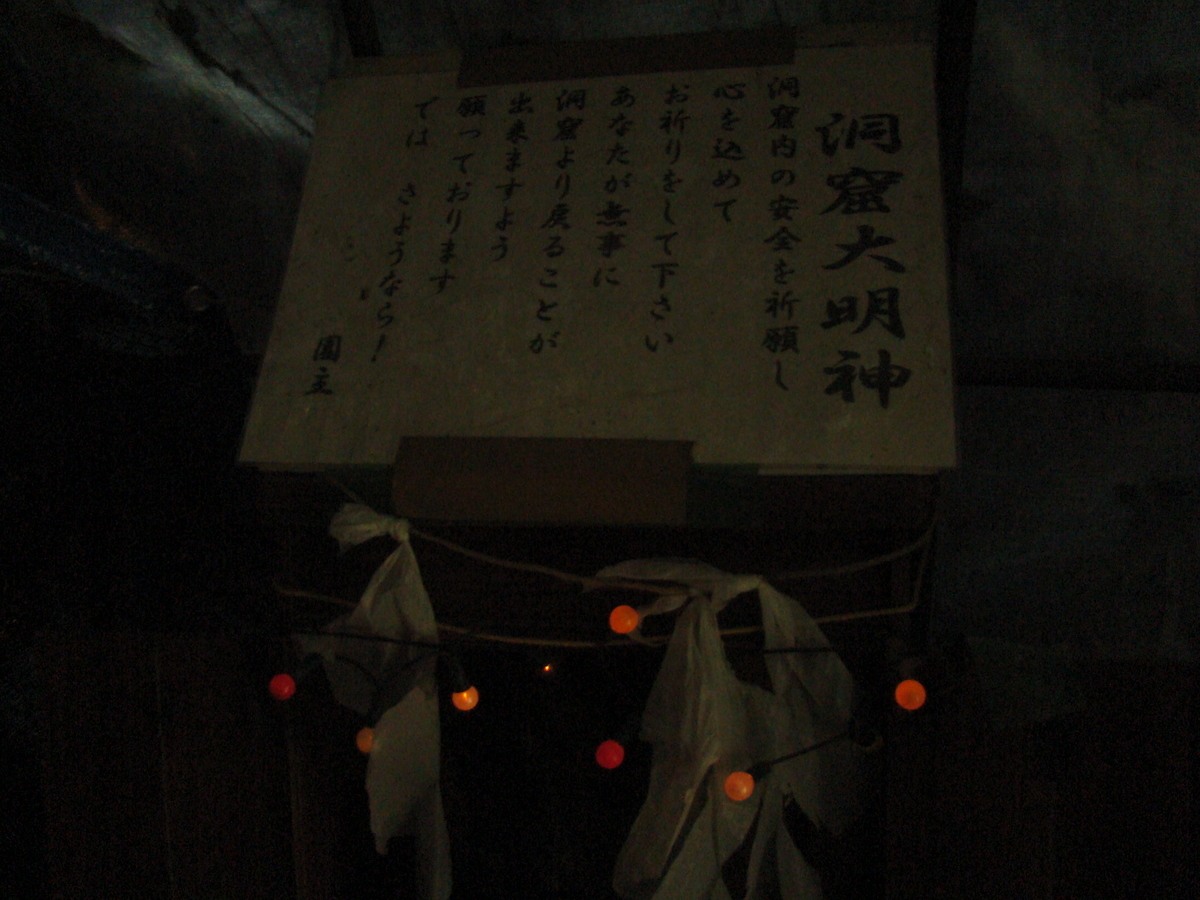 洞窟大明神
洞窟内の安全を祈願し
心を込めて
お祈りをして下さい
あなたが無事に
洞窟より戻ることが
出来ますよう
願っております
では さようなら!
園主